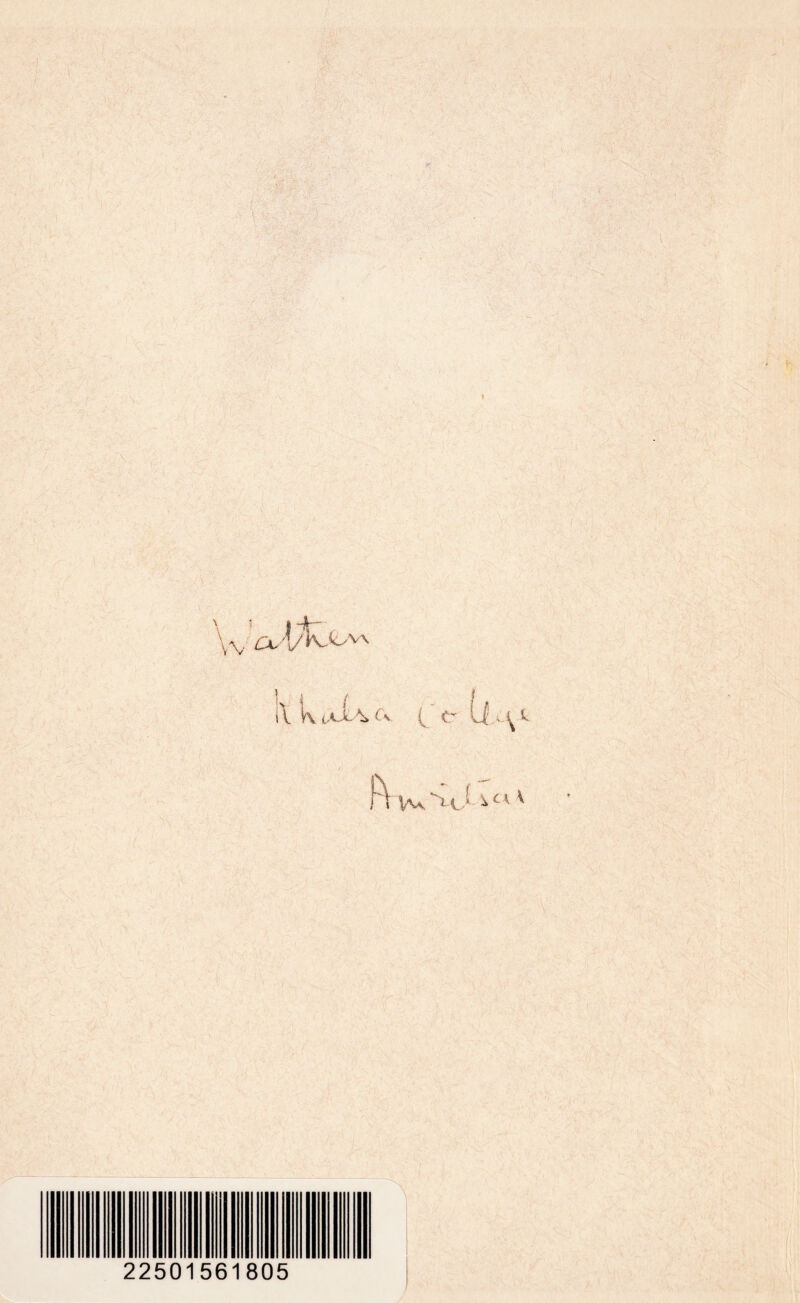 Wathen
Khalsa College
Amritsar
22501561805